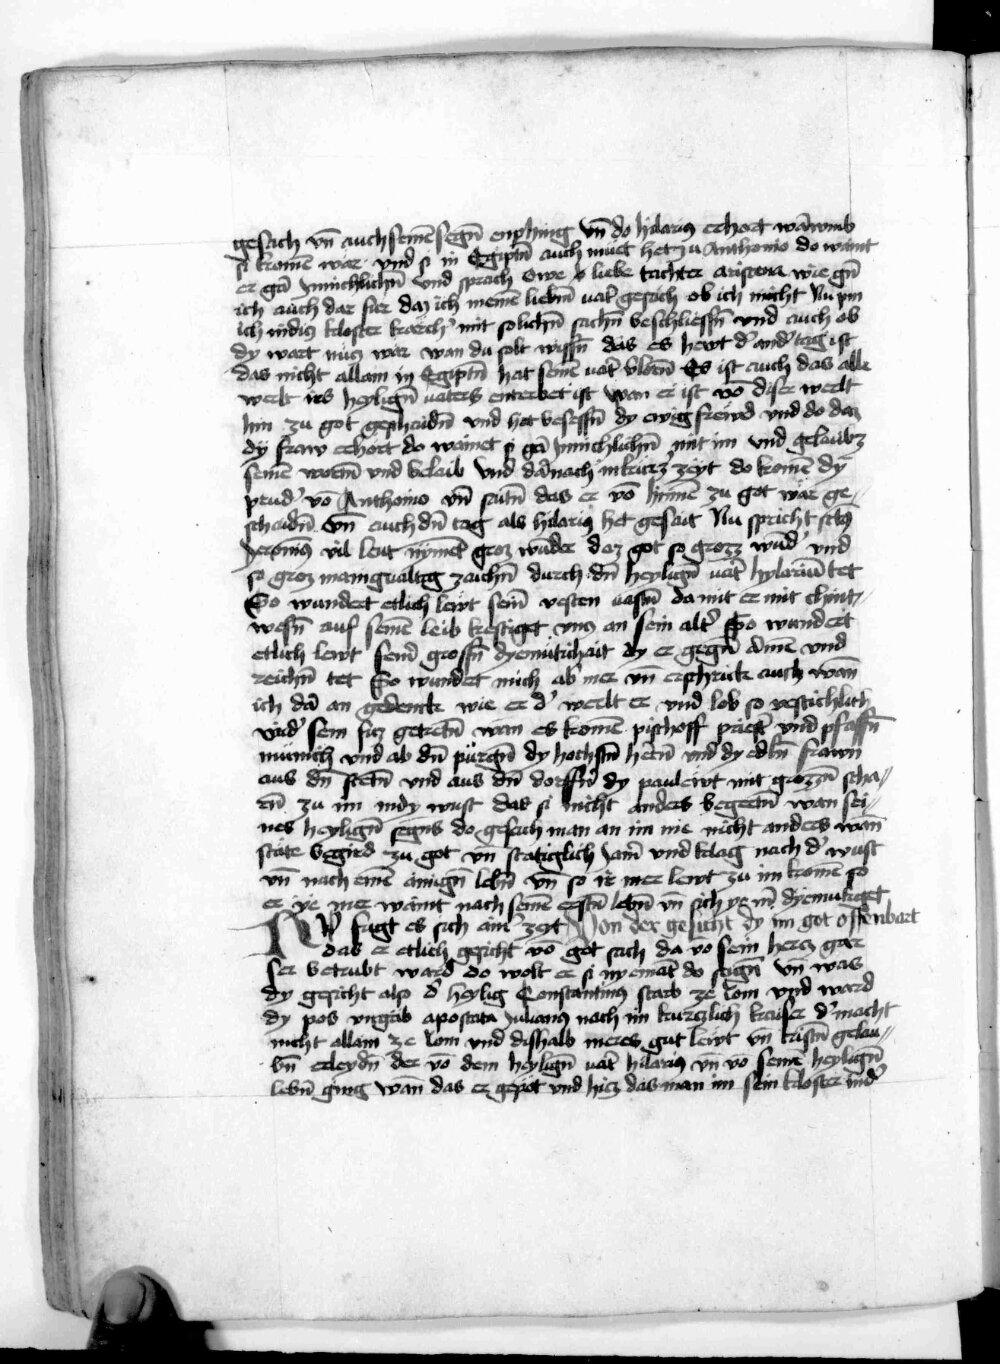 gesach vn̄ auch seinē segn̄ enphing Vn̄ do hilariꝰ erhort wārumb
si komē war vnd si in Egiptn̄ auch muet het zu Anthonio do waint
er gā Jnnichlichn̄ vnd sprach Owe liebe tachter aristena wie gn̄
ich auch dar fur daz ich meinē liebn̄ vatˀ gesech ob ich nicht Nu pin
ich indiez kloster kärchˀ mit solichn̄ sachn̄ beschliessn̄ vnd auch ob
dy wart nucz wär wan du solt wissn̄ das es hewt dˀ andˀ tag ist
das nicht allain in Egiptn̄ hat seinē vatˀ v̄lorn̄ Es ist auch das alle
werlt irs heylign̄ vaters enterbet ist wan er ist vō diser werlt
hin zu got geschaidn̄ vnd het besessn̄ dy ewig frewd vnd do daz
dy fraw erhort do wainet si gā Jnnichlichn̄ mit im vnd gelaubz
seinē wortn̄ vnd belaib vnd darnach inkurczˀ zeyt do komē dy
prudˀ vō Anthonio vn̄ saitn̄ das er vō hinnen zu got wär ge-
schaidn̄ Vn̄ auch dn̄ tag als hilariꝰ het gesait Nu spricht sctꝰ
Jeronimꝰ vil leut nymet groz wunder daz got so grozz wūdˀ vnd
so groz manigualtig zaichn̄ durch dn̄ heylign̄ vatˀ hylariū tet
So wundert etlich lewt seiner vesten vastn̄ da mit er mit chint-
wesn̄ auf seinē leib kestiget vncz an sein altˀ So wundert
etlich lewt seinˀ grossn̄ dyemutichait dy er gegn̄ armē vnd
reichn̄ tet So wundert mich abˀ mer vn̄ erschrick auch wan̄
ich dar an gedenck wie er dˀ werlt er vnd lob so vestichlich
vndˀ sein fuz getretn̄ wan es komē pischoff priestˀ vnd pfaffn̄
münich vnd ab dn̄ pürgn̄ dy hochstn̄ hern̄ vnd dy edln̄ frawn̄
aus dn̄ stetn̄ vnd aus dn̄ dorffˀn dy paulewt mit grozzn̄ scha-
rn̄ zu im indy wust das si nicht anders begertn̄ wan sei-
nes heylign̄ segns do gesach man an im nie nicht anders wan̄
stäte begird zu got vn̄ stätiglich Jamˀ vnd klag nach dˀ wust
vn̄ nach einē ainign̄ lebn̄ vn̄ so ie mer lewt zu im komē so
er ye mer waint nach seinē erstn̄ lebn̄ vn̄ sich ye mˀ dyemutiget
Nv fugt es sich ainˀ zeyt Von der gesicht dy im got offenbart
das er etlich gesicht vō got sach da vō sein hercz gar
ser betrubt ward do wolt er si nyemāt do sagn̄ Vn̄ was
dy gesicht also dˀ heylig Constantinꝰ starb ze Rom vnd ward
dy pos vngab apostata Julianꝰ nach im kurczlich kaiser dˀ macht
nicht allain ze Rom vnd disshalb meres gut lewt vn̄ kristn̄ gelau-
bn̄ erleydn̄ der vō dem heylign̄ vatˀ hilariꝰ vn̄ vō seinē heylign̄
lebn̄ ging Wan̄ das er gepot vnd hiez das man im sein kloster nidˀ